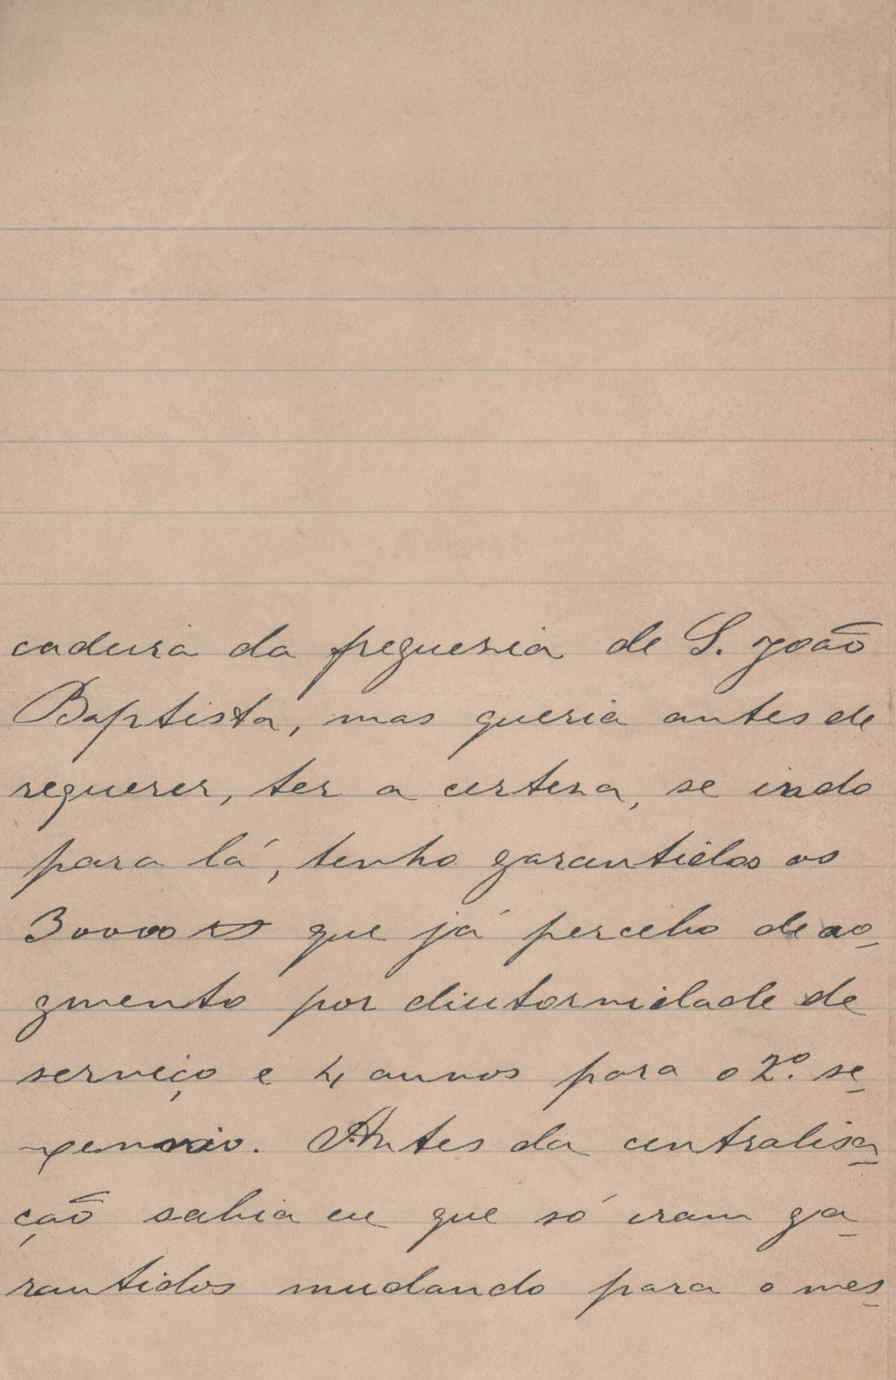 cadeira da freguesia de S. João
Baptista, mas queria antes de
requerer, ter a certeza, se indo
para lá, tenho garantidos os
30000 rs que já percebo de au-
gmento por diuturnidade de
serviço e 4 annos para o 2º. se-
xennio. Antes da centralisa-
ção sabia eu que só eram ga-
rantidos mudando para o mes-